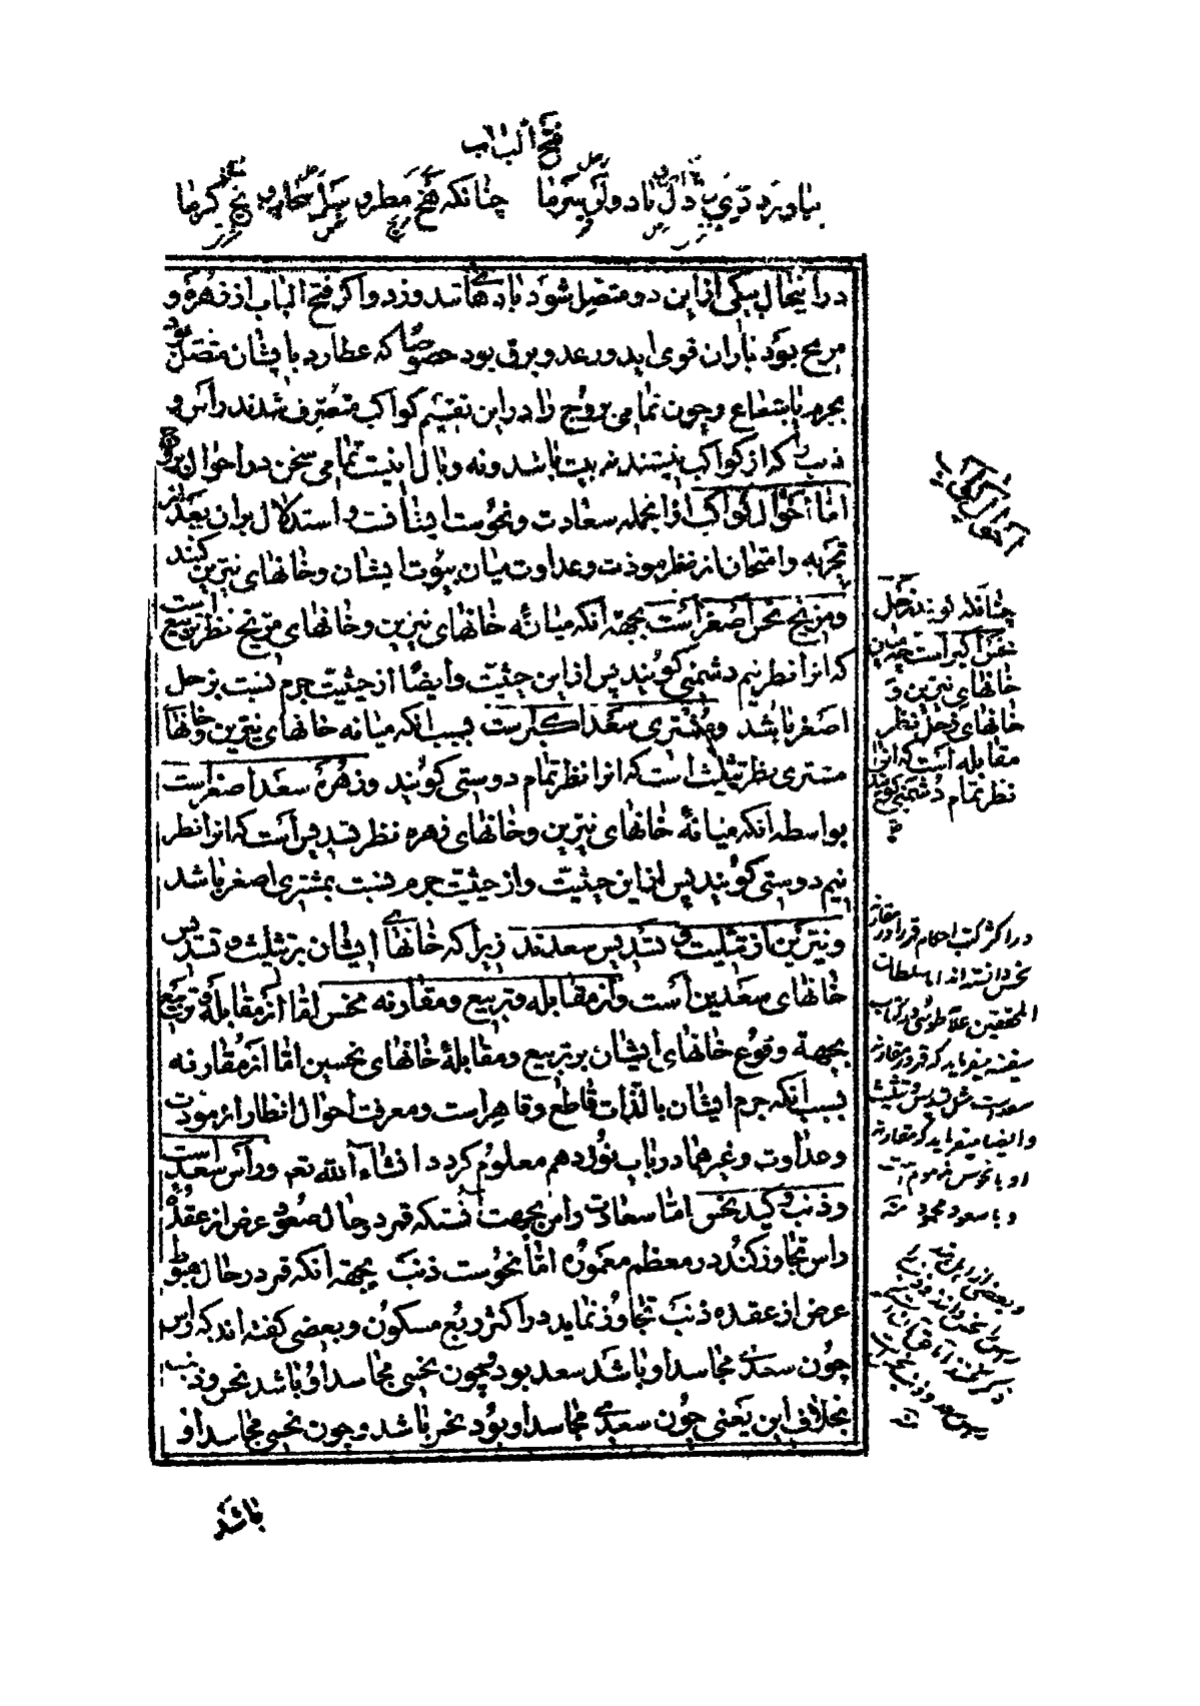 فتح الباب
در اینحال بیکی از این دو متصل شود بادهای تند وزد و اکر فتح الباب از زهره و
مریخ بود باران قوی اید و رعد و برق بود خصوصا که عطارد بایشان متصل بود
بجرم یا بشعاع و چون تمامی بروج را در این تقسیم کواکب متصرف شدند رأس و
ذنب که از کواکب نیستند نه بیت باشد و نه وبال اینست تمامی سخن در احوال بروج
اما احوال کواکب از انجمله سعادت و نحوست ایشانست و استدلال بران بعد از
تجربه و امتحان از نظر مودت و عداوت میان بیوت ایشان و خانهای نیرین کنند
و مریخ نحس اصغر است بجهة انکه میانهٔ خانهای نیرین و خانهای مریخ نظر تربیع است
که انرا نظر نیم دشمنی کویند پس از این حیثیت و ایضا از حیثیت جرم نسبت بزحل
اصغر باشد و مشتری سعد اکبر است بسبب انکه میانه خانهای نیرین و خانهای
مشتری نظر تثلیث است که انرا نظر تمام دوستی کویند و زهره سعد اصغر است
بواسطه انکه میانهٔ خانهای نیرین و خانهای زهره نظر تسدیس است که انرا نظر
نیم دوستی کویند پس از این حیثیت و از حیثیت جرم نسبت بمشتری اصغر باشد
و نیرین از تثلیث و تسدیس سعدند زیرا که خانهای ایشان بر تثلیث و تسدیس
خانهای سعدین است و از مقابله و تربیع و مقارنه نحس اما از مقابله و تربیع
بجهة وقوع خانهای ایشان بر تربیع و مقابلهٔ خانهای نحسین اما از مقارنه
بسبب انکه جرم ایشان بالذات قاطع و قاهر است و معرفت احوال انظار از مودت
و عداوت و غیرهما در باب نوزدهم معلوم کردد انشاء الله تعه و رأس سعد است
و ذنب و کید نحس اما سعادت راس بجهت انستکه قمر در حال صعود عرض از عقدهٔ
راس تجاوز کند در معظم معموره اما نحوست ذنب بجهة انکه قمر در حال هبوط
عرض از عقده ذنب تجاوز نماید در اکثر ربع مسکون و بعضی کفته اند که راس
چون سعدی مجاسد او باشد سعد بود و چون نحسی مجاسد او باشد نحس و ذنب
بخلاف این یعنی چون سعدی مجاسد او بود نحس باشد و چون نحسی مجاسد او
باشد
احوال کواکب
چنانکه کویند زحل
نحس اکبر است چه میان
خانهای نیرین و
خانهای زحل نظر
مقابله است که انرا
نظر تمام دشمنی کویند
در اکثر کتب احکام قمر را در مقارنه
نحس دانسته اند اما سلطان
المحققین علامه طوسی در کتاب
سفینه میفرماید که قمر در مقارنه
سعد است مثل تسدیس و تثلیث
و ایضا میفرماید که مقارنه
او با نحوس مذموم است
و با سعود محمود منه